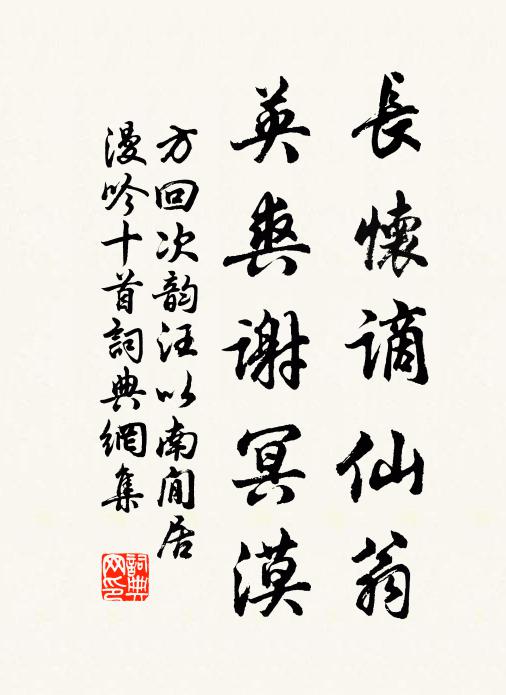 長懷謫仙翁
英爽謝冥漠
方回次韵汪以南閒居
漫吟十首詞典網集
詞典
网印